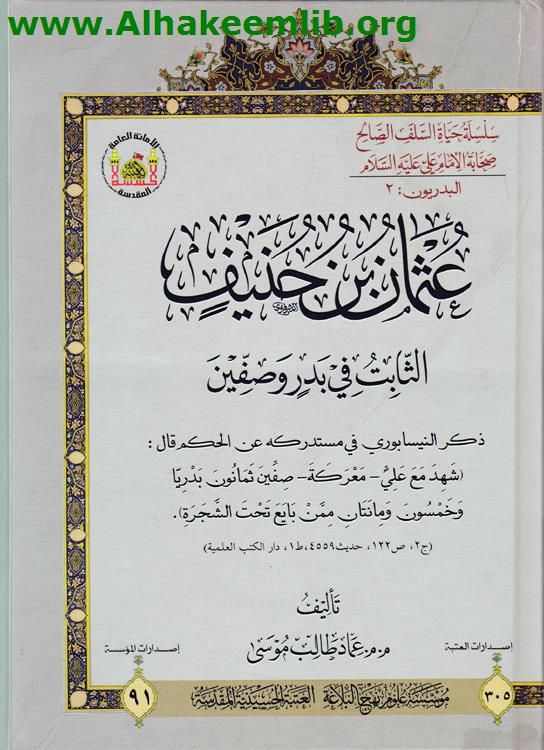 www.Alhakeemlib.org
سلسلة حياة السلف الصالح
صحابة الإمام علي عليه السلام
البدريون: ٢
الأمانة العامة
المقدسة
عُثمانُ بنُ حُنَيفٍ
الثَّابِتُ فِي بَدْرٍ وَصِفِّيْنَ
ذكر النيسابوري في مستدركه عن الحكم قال:
(شَهِدَ مَعَ عَلِيٍّ - مَعْرَكَةَ - صِفِّينَ ثَمَانُونَ بَدْرِيًّا
وَخَمْسُونَ وَمِائَتَانِ مِمَّنْ بَايَعَ تَحْتَ الشَّجَرَةِ).
(ج٢، ص١٢٢، حديث٤٥٥٩، ط١، دار الكتب العلمية)
تأليفُ
م.م. عماد طالب موسى
إصدارات العتبة
٣٠٥
إصدارات المؤسسة
٩١
مؤسسة علوم نهج البلاغة العتبة الحسينية المقدسة